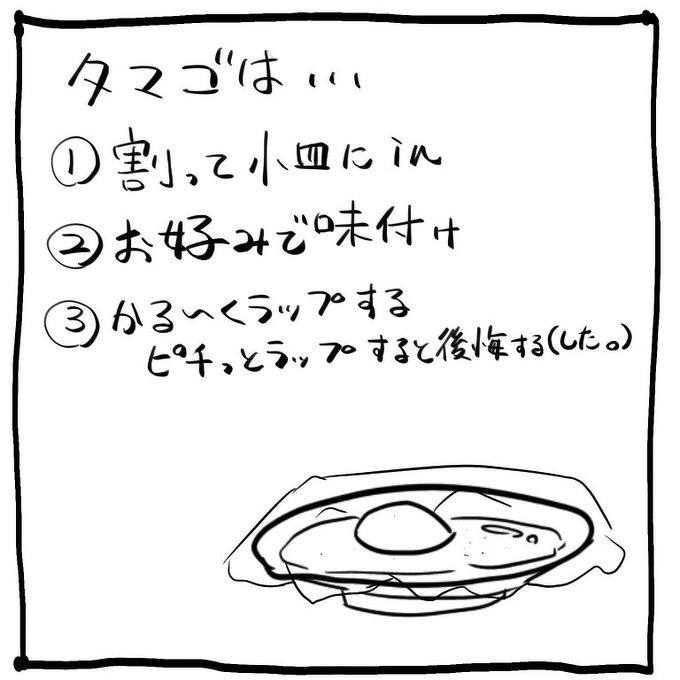 タマゴは…
①割って小皿にin
②お好みで味付け
③かる〜くラップする
ピチっとラップすると後悔する(した。)